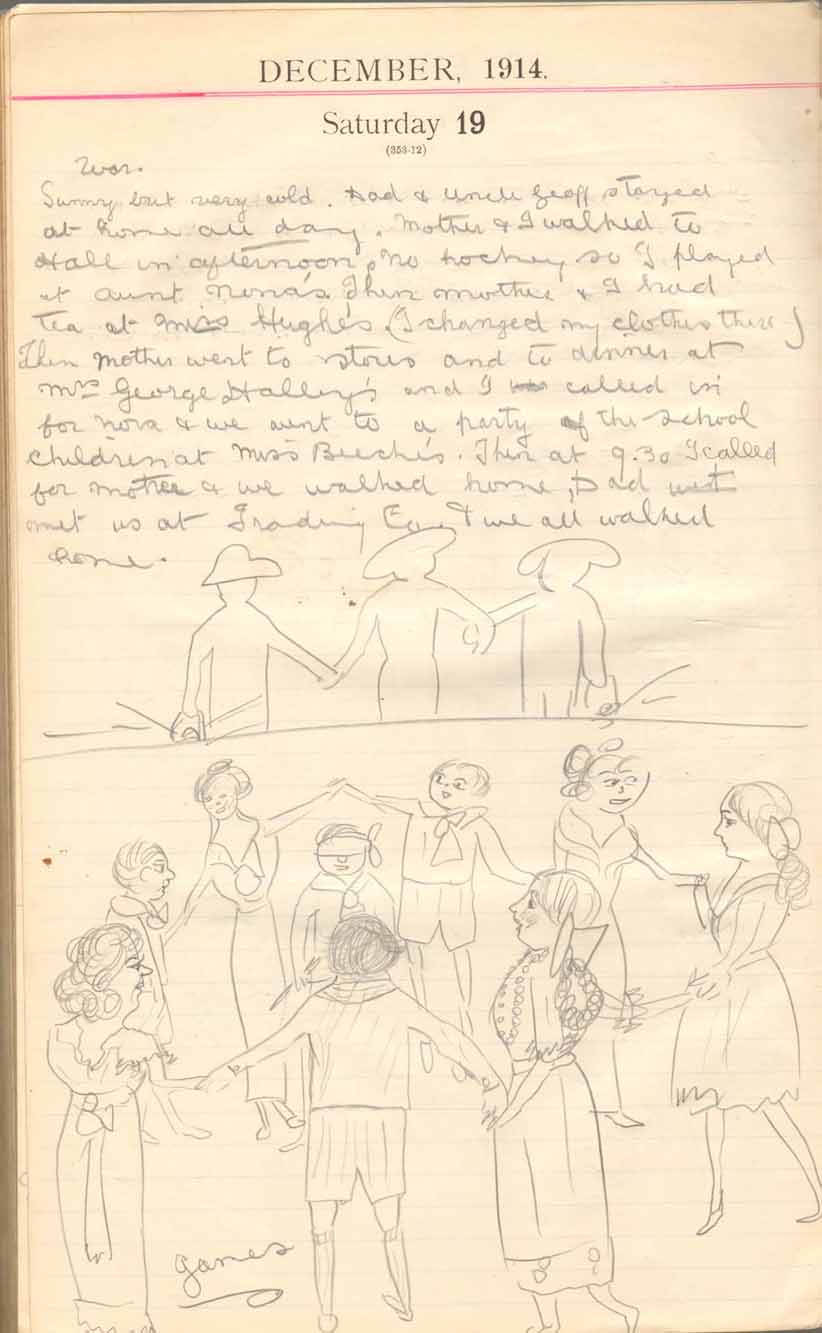 DECEMBER, 1914.
Saturday 19
(353-12)
War.
Sunny but very cold. Dad & Uncle Geoff stayed
at home all day. Mother & I walked to
Hall in afternoon, no hockey so I played
at Aunt Nona's. Then mother & I had
tea at Miss Hughes (I changed my clothes there)
Then Mother went to stores and to dinner at
Mrs George Halley's and I called in
for Nora & we went to a party of the school
children at Miss Beeche's. Then at 9.30 I called
for mother & we walked home, Dad
met us at Trading Co. & we all walked
home.
games